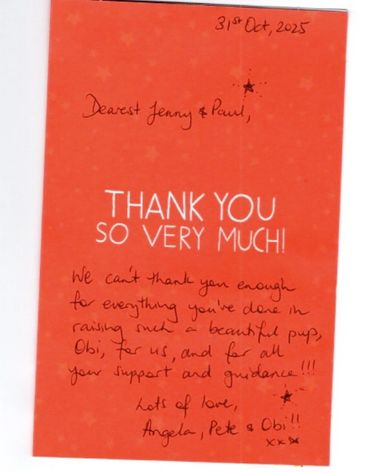 31st Oct, 2025
Dearest Jenny & Paul,
THANK YOU
SO VERY MUCH!
We can't thank you enough
for everything you've done in
raising such a beautiful pup,
Obi, for us, and for all
your support and guidance!!!
Lots of love,
Angela, Pete & Obi!!
xxx